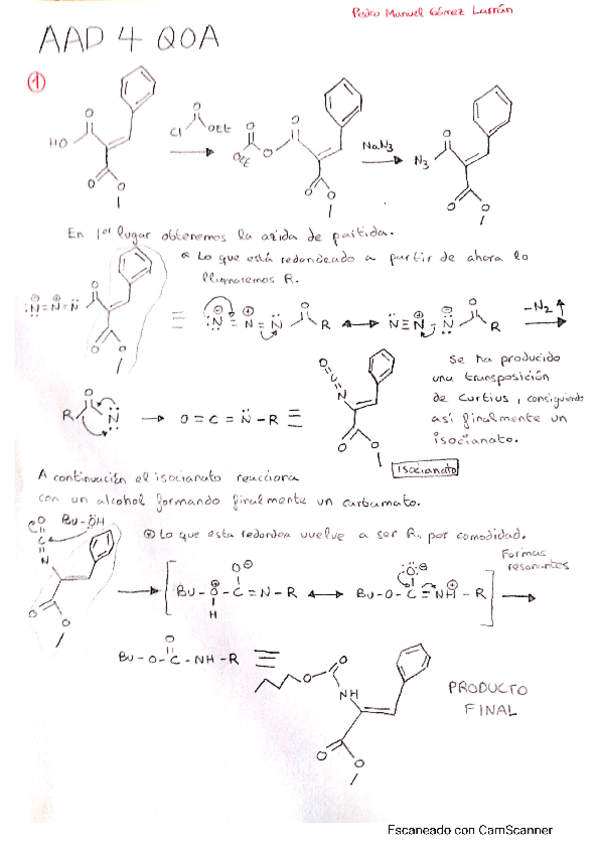 Pedro Manuel Gómez Larrán
AAD 4 QOA
①
HO O O O Cl O OEt O OEt O O O O NaN3 N3 O O O
En 1er lugar obtenemos la azida de partida.
* Lo que está redondeado a partir de ahora lo
llamaremos R.
:N=N=N O O O ≡ :N=N=N O R ↔ N≡N-N O R -N2↑
Se ha producido
una transposición
de Curtius, consiguiendo
así finalmente un
isocianato.
R O N → O=C=N-R ≡ O=C=N O O
isocianato
A continuación el isocianato reacciona
con un alcohol formando finalmente un carbamato.
O C N Bu-OH O O
* Lo que esta redondea vuelve a ser R, por comodidad.
Formas
resonantes
Bu-O-C=N-R H O ↔ Bu-O-C=NH-R O
Bu-O-C-NH-R O ≡ O O NH O O
PRODUCTO
FINAL
Escaneado con CamScanner